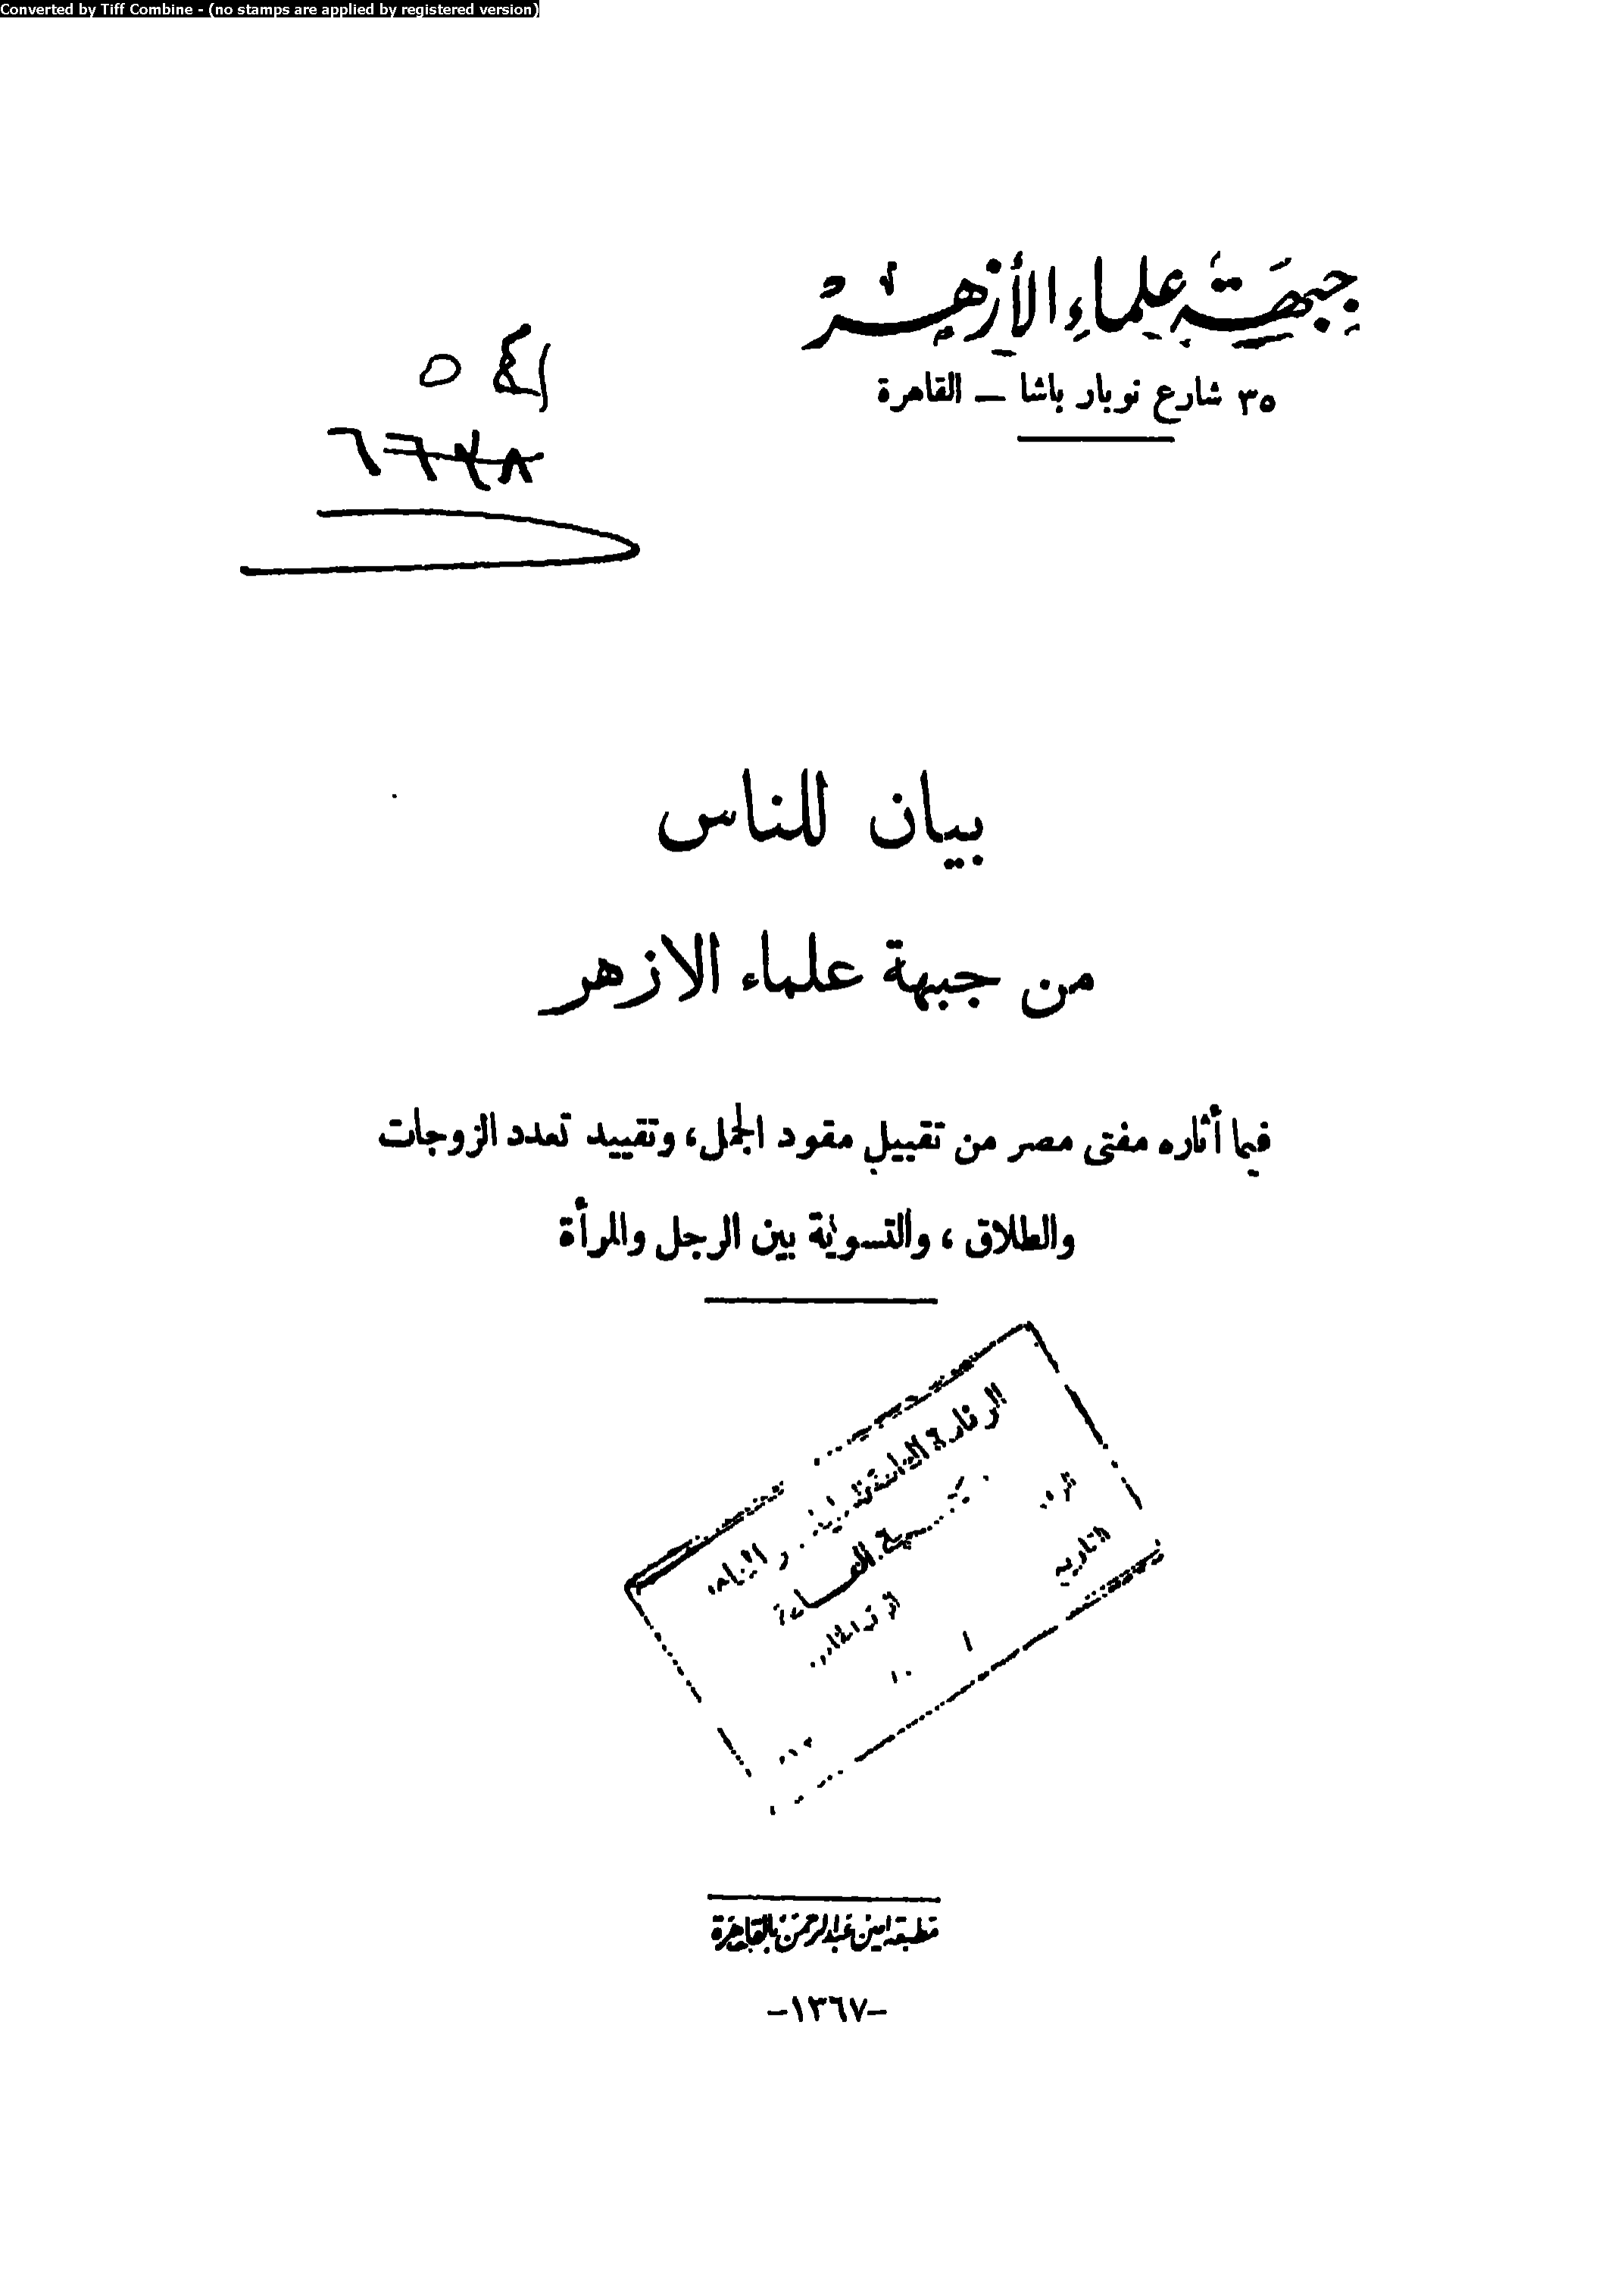 Converted by Tiff Combine - (no stamps are applied by registered version)
جبهة علماء الأزهر
٣٥ شارع نوبار باشا — القاهرة
بيان للناس
من جبهة علماء الازهر
فيما أثاره مفتى مصر من تقبيل مقود الجمل، وتقييد تعدد الزوجات
والطلاق، والتسوية بين الرجل والمرأة
التاريخ
مطبعة امين عبدالرحمن بالقاهرة
-١٣٦٧-